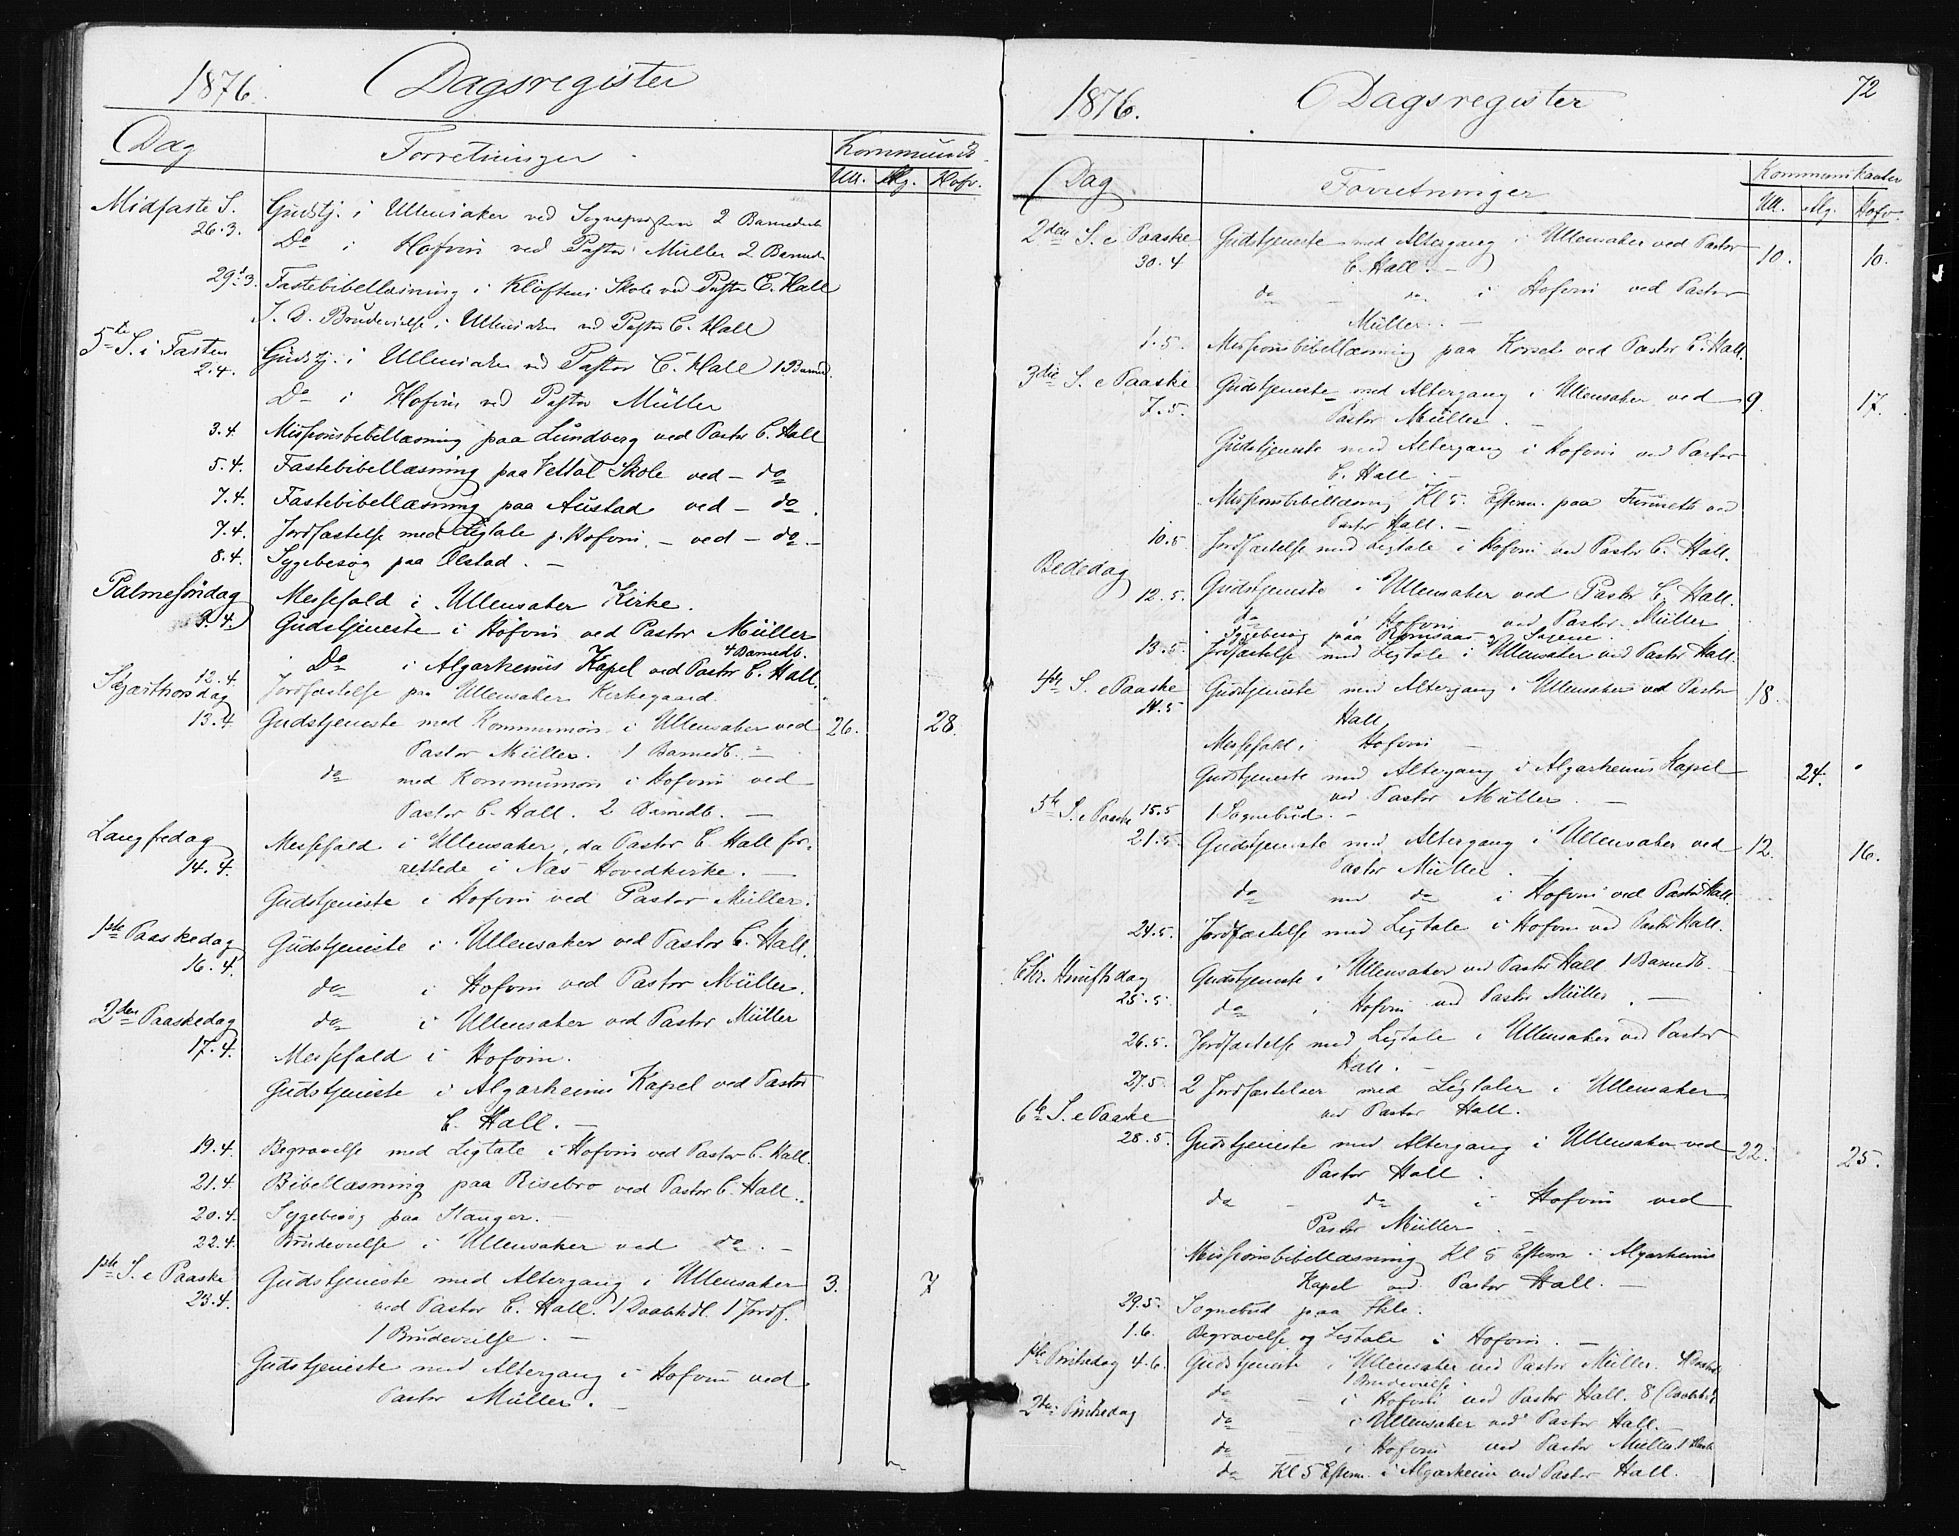 1876. Dagsregister
Dag Forretninger Kommunik.
Ull. Alg. Hofv.
Midfaste S. Gudstj. i Ullensaker ved Sogneprosten 2 Barnedaab
26.3. Do i Hofvin ved Pastor Müller 2 Barned.
29.3. Fastebibellæsning i Klöftens Skole ved Past. C. Hall
S. D. Brudevielse i Ullensaker ved Pastor C. Hall
5te S. i Fasten Gudstj. i Ullensaker ved Pastor C. Hall 1 Barned.
2.4. Do i Hofvin ved Pastor Müller
3.4. Missionsbibellæsning paa Lundberg ved Pastor C. Hall
5.4. Fastebibellæsning paa Vettal Skole ved – do
7.4. Fastebibellæsning paa Austad ved – do.
7.4. Jordfæstelse med Ligtale i Hofvin. – ved – do –
8.4. Sygebesøg paa Ølstad. –
Palmesöndag Messefald i Ullensaker Kirke.
9.4. Gudstjeneste i Hofvin ved Pastor Müller
4 Barnedb.
Do i Algarheims Kapel ved Pastor C. Hall.
12.4 Jordfæstelse paa Ullensaker Kirkegaard.
Skjærthorsdag
13.4 Gudstjeneste med Kommunion i Ullensaker ved 26. 28.
Pastor Müller. 1 Barnedb. –
do med Kommunion i Hofvin ved
Pastor C. Hall. 2 Barnedb. –
Langfredag Messefald i Ullensaker, da Pastor C Hall for-
14.4. rettede i Næs Hovedkirke. –
Gudstjeneste i Hofvin ved Pastor Müller.
1ste Paaskedag Gudstjeneste i Ullensaker ved Pastor C. Hall.
16.4. do i Hofvin ved Pastor Müller.
2den Paaskedag do i Ullensaker ved Pastor Müller
17.4. Messefald i Hofvin.
Gudstjeneste i Algarheims Kapel ved Pastor
C. Hall. –
19.4. Begravelse med Ligtale i Hofvin ved Pastor C. Hall.
21.4. Bibellæsning paa Risebro ved Pastor C. Hall.
20.4. Sygebesøg paa Stanger. –
22.4. Brudevielse i Ullensaker ved do. –
1ste S. e Paaske Gudstjeneste med Altergang i Ullensaker 3. 7
23.4. ved Pastor C. Hall. 1 Daabshdl. 1 Jordf.
1 Brudevielse. –
Gudstjeneste med Altergang i Hofvin ved
Pastor Müller. –
72
1876. Dagsregister
Dag Forretninger Kommunikanter
Ull. Alg. Hofv.
2den S. e Paaske Gudstjeneste med Altergang i Ullensaker ved Pastor 10. 10.
30.4 C. Hall. –
do – do i Hofvin ved Pastor
Müller. –
1.5. Missionsbibellæsning paa Korset ved Pastor C. Hall.
3die S. e Paaske Gudstjeneste med Altergang i Ullensaker ved 9. 17.
7.5. Pastor Müller. –
Gudstjeneste med Altergang i Hofvin ved Pastor
C. Hall –
Missionsbibellæsning Kl 5 Efterm. paa Furuseth ved
Pastor Hall. –
10.5. Jordfæstelse med Ligtale i Hofvin ved Pastor C. Hall.
Bededag
12.5. Gudstjeneste i Ullensaker ved Pastor C. Hall.
do i Hofvin ved Pastor Müller
Sygebesøg paa Romsaas
13.5. Jordfæstelse med Ligtale i Ullensaker ved Pastor Hall.
4de S. e Paaske Gudstjeneste med Altergang i Ullensaker ved Pastor 18.
14.5 Hall
Messefald i Hofvin –
Gudstjeneste med Altergang i Algarheims Kapel 24.
ved Pastor Müller. –
15.5 1 Sognebud. –
5te S. e Paaske
21.5. Gudstjeneste med Altergang i Ullensaker ved 12. 16.
Pastor Müller.
do med do i Hofvin ved Pastor Hall.
24.5. Jordfæstelse med Ligtale i Hofvin ved Pastor Hall.
Chr. Himlftsdag Gudstjeneste i Ullensaker ved Pastor Hall 1 Barnedb.
25.5. do i Hofvin ved Pastor Müller. –
26.5. Jordfæstelse med Ligtale i Ullensaker ved Pastor
Hall. –
27.5. 2 Jordfæstelser med Ligtaler i Ullensaker
ved Pastor Hall.
6te S. e Paaske
28.5. Gudstjeneste med Altergang i Ullensaker ved 22. 25.
Pastor Hall.
do – do i Hofvin ved
Pastor Müller. –
Missionsbibellæsning Kl 5 Efterm i Algarheims
Kapel ved Pastor Hall. –
29.5. Sognebud paa
1.6. Begravelse og Ligtale i Hofvin. –
1ste Pintsdag 4.6. Gudstjeneste i Ullensaker ved Pastor Müller.
1 Brudevielse.
do – i Hofvin ved Pastor Hall. 8
2den Pintsedag do i Ullensaker ved Pastor Hall.
do – i Hofvin ved Pastor Müller.
do Kl 5 Efterm. i Algarheim ved Pastor Hall.